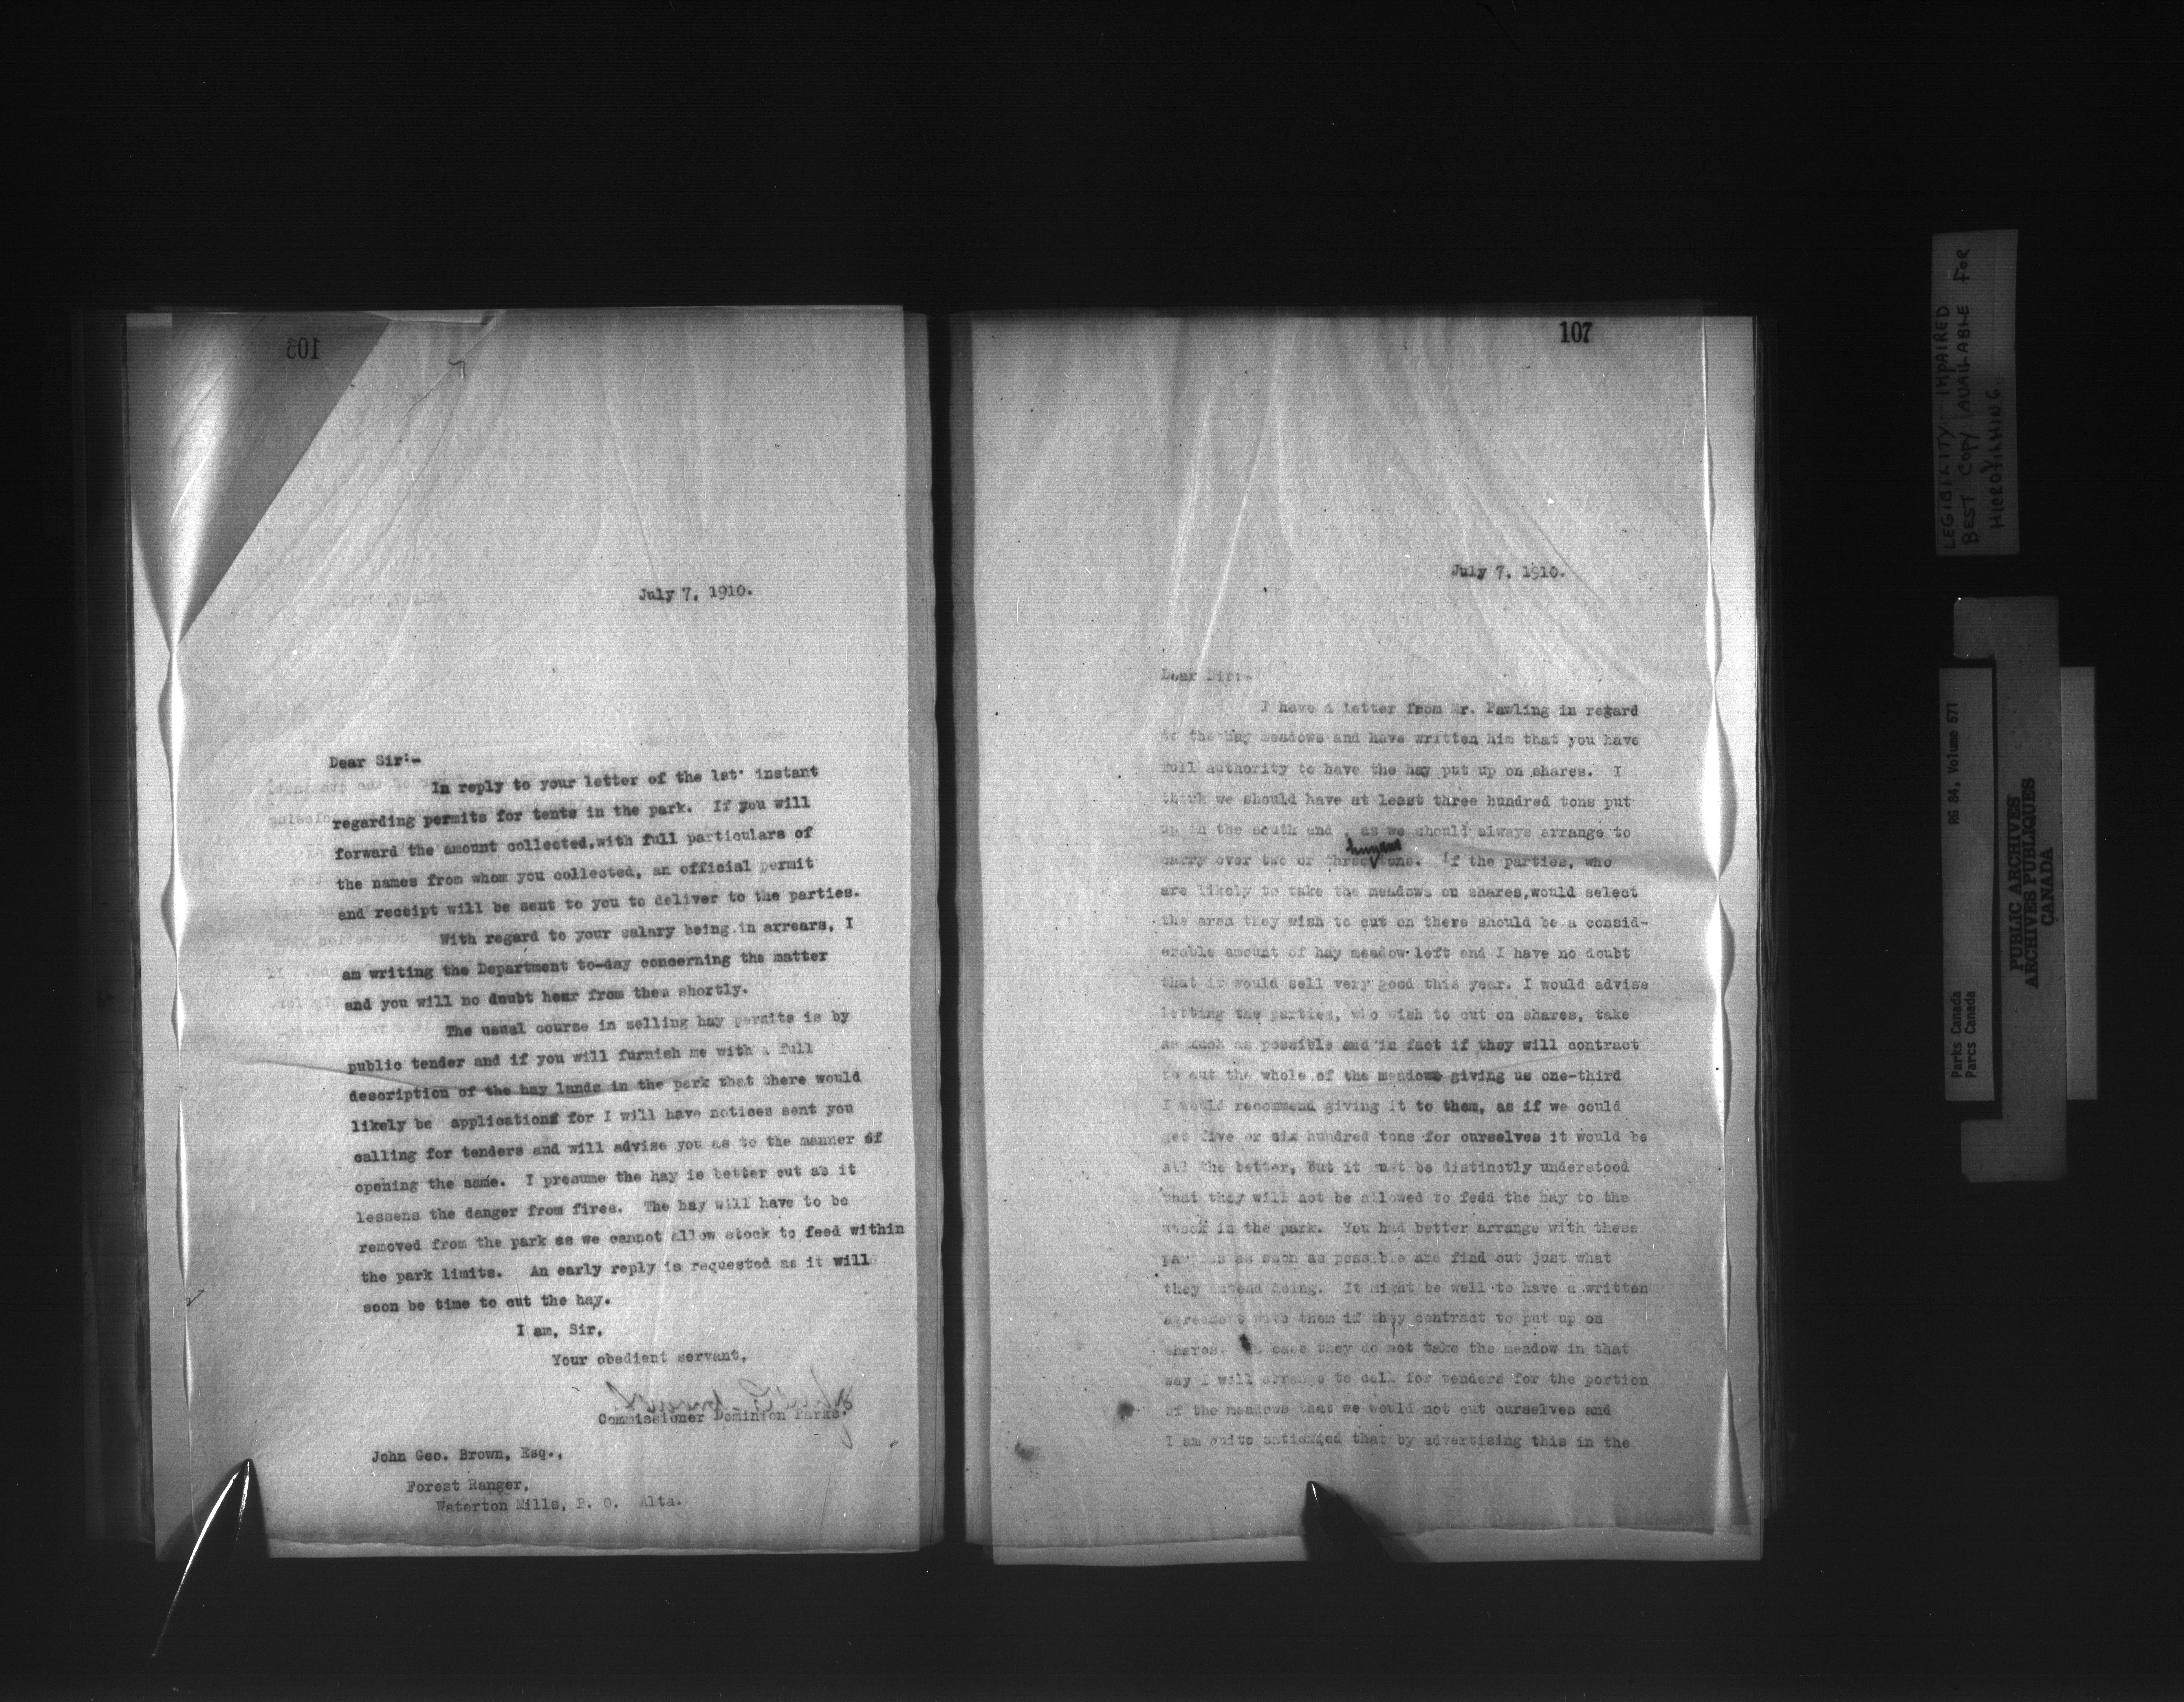 103
July 7, 1910.
Dear Sir:-
In reply to your letter of the 1st' instant
regarding permits for tents in the park. If you will
forward the amount collected,with full particulars of
the names from whom you collected, an official permit
and receipt will be sent to you to deliver to the parties.
With regard to your salary being in arrears, I
am writing the Department to-day concerning the matter
and you will no doubt hear from them shortly.
The usual course in selling hay permits is by
public tender and if you will furnish me with a full
description of the hay lands in the park that there would
likely be applications for I will have notices sent you
calling for tenders and will advise you as to the manner of
opening the same. I presume the hay is better cut as it
lessens the danger from fires. The hay will have to be
removed from the park as we cannot allow stock to feed within
the park limits. An early reply is requested as it will
soon be time to cut the hay.
I am, Sir,
Your obedient servant,
Commissioner Dominion Parks.
John Geo. Brown, Esq.,
Forest Ranger,
Waterton Mills, P. O. Alta.
107
July 7, 1910.
Dear Sir:-
I have a letter from Mr. Pawling in regard
to the hay meadows and have written him that you have
full authority to have the hay put up on shares. I
think we should have at least three hundred tons put
up in the south end , as we should always arrange to
carry over two or three hundred tons. If the parties, who
are likely to take the meadows on shares,would select
the area they wish to cut on there should be a consid-
erable amount of hay meadow left and I have no doubt
that it would sell very good this year. I would advise
letting the parties, who wish to cut on shares, take
as much as possible and in fact if they will contract
to cut the whole of the meadows giving us one-third
I would recommend giving it to them, as if we could
get five or six hundred tons for ourselves it would be
all the better, But it must be distinctly understood
that they will not be allowed to fedd the hay to the
stock in the park. You had better arrange with these
parties as soon as possible and find out just what
they intend doing. It might be well to have a written
agreement with them if they contract to put up on
shares. In case they do not take the meadow in that
way I will arrange to call for tenders for the portion
of the meadows that we would not cut ourselves and
I am quite satisfied that by advertising this in the
LEGIBILITY IMPAIRED
BEST COPY AVAILABLE FOR
MICROFILMING.
RG 84, Volume 571
Parks Canada
Parcs Canada
PUBLIC ARCHIVES
ARCHIVES PUBLIQUES
CANADA